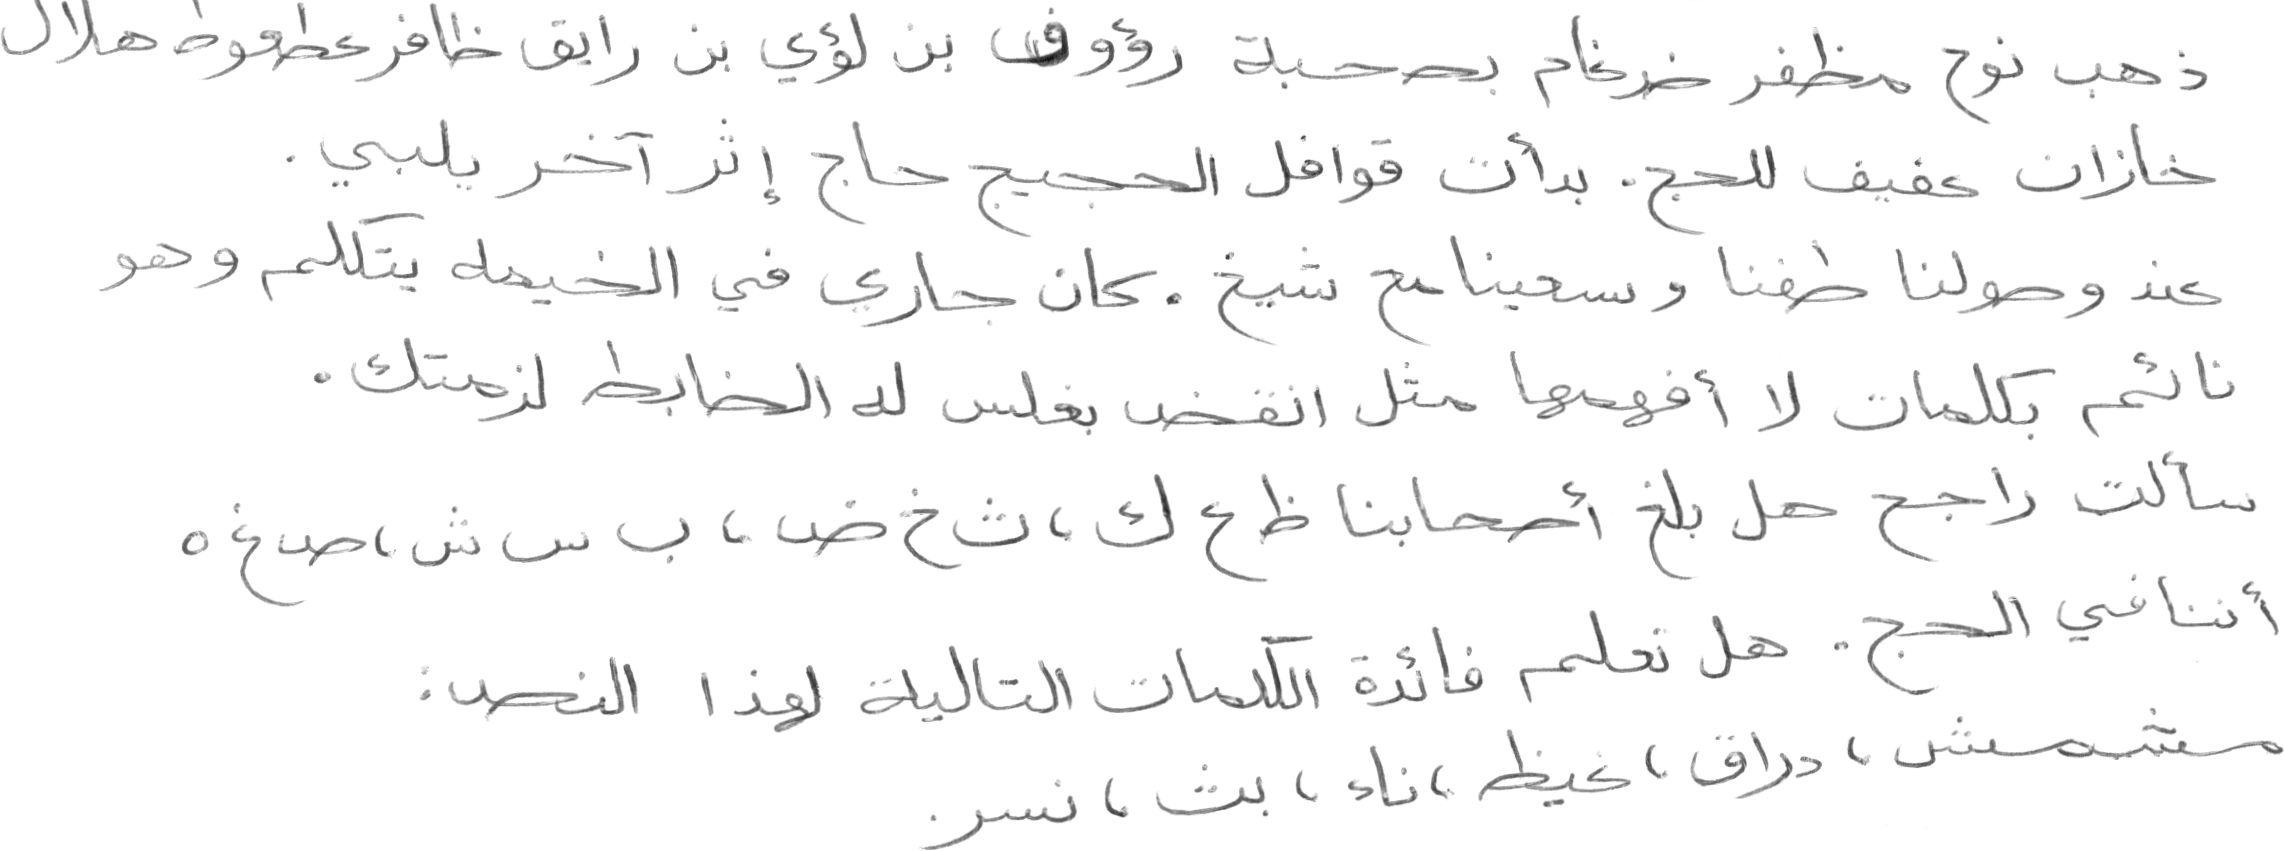 ذهب نوح مظفر ضرغام بصحبة رؤوف بن لؤي بن رايق ظافر عطعوط هلال
خازان عفيف للحج. بدأت قوافل الحجيج حاج إثر آخر يلبي.
عند وصولنا طفنا وسعينا مع شيخ. كان جاري في الخيمه يتكلم وهو
نائم بكلمات لا أفهمها مثل انقض بغلس له الضابط لزمتك.
سألت راجح هل بلغ أصحابنا ظ ع ك، ث خ ض، ب س ش، ص غ ه
أننا في الحج. هل تعلم فائدة الكلمات التالية لهذا النص:
مشمش، دراق، غيظ، ناء، بث، نسر.